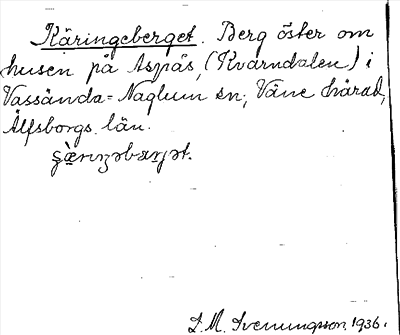 Käringeberget. Berg öster om
husen på Aspås, (Kvarndalen) i
Vassända-Naglum sn, Väne härad,
Älfsborgs län.
L. M. Svenungsson 1936.